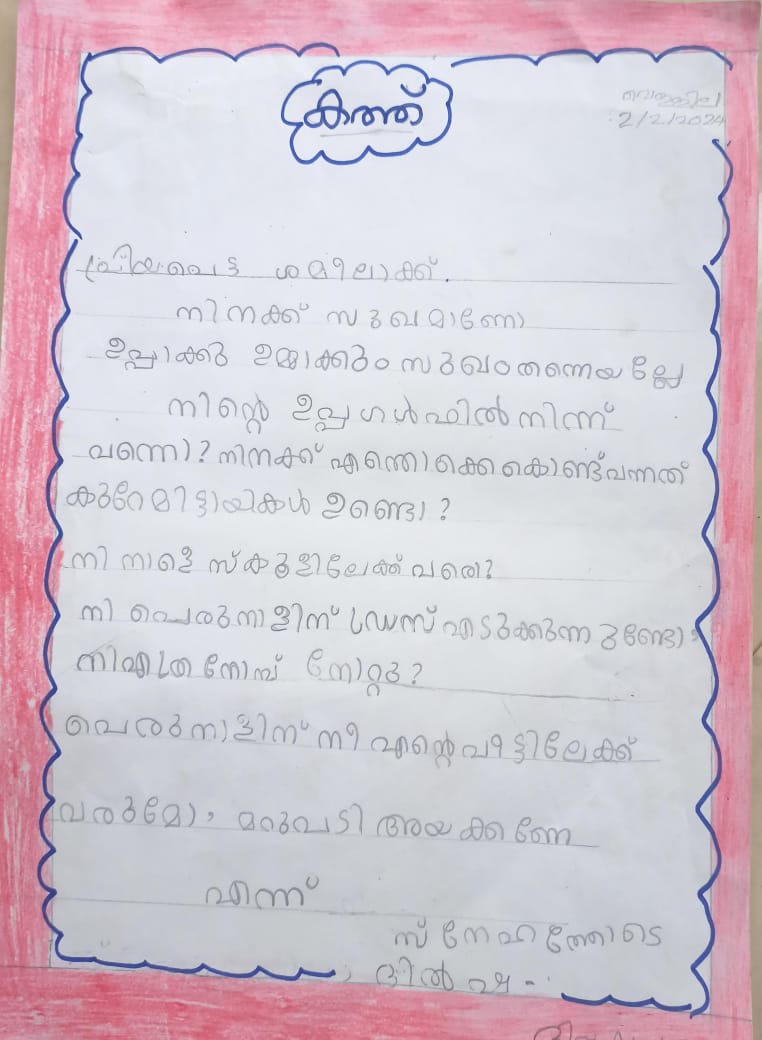 കത്ത്
2/2/2024
പ്രിയപ്പെട്ട ശമീലാക്ക്.
നിനക്ക് സുഖമാണോ
ഉപ്പാക്കു ഉമ്മാക്കും സുഖംതന്നെയല്ലേ
നിന്റെ ഉപ്പ ഗൾഫിൽ നിന്ന്
വന്നൊ? നിനക്ക് എന്തൊക്കെ കൊണ്ട് വന്നത്
കുറേ മിട്ടായികൾ ഉണ്ടൊ?
നീ നാളെ സ്കൂളിലേക്ക് വരൊ?
നീ പെരുന്നാളിന് ഡ്രസ് എടുക്കുന്നുണ്ടോ?
നീ എത്ര നോമ്പ് നോറ്റു?
പെരുന്നാളിന് നീ എന്റെ വീട്ടിലേക്ക്
വരുമോ, മറുപടി അയക്കണേ
എന്ന്
സ്നേഹത്തോടെ
ദിൽഷ -